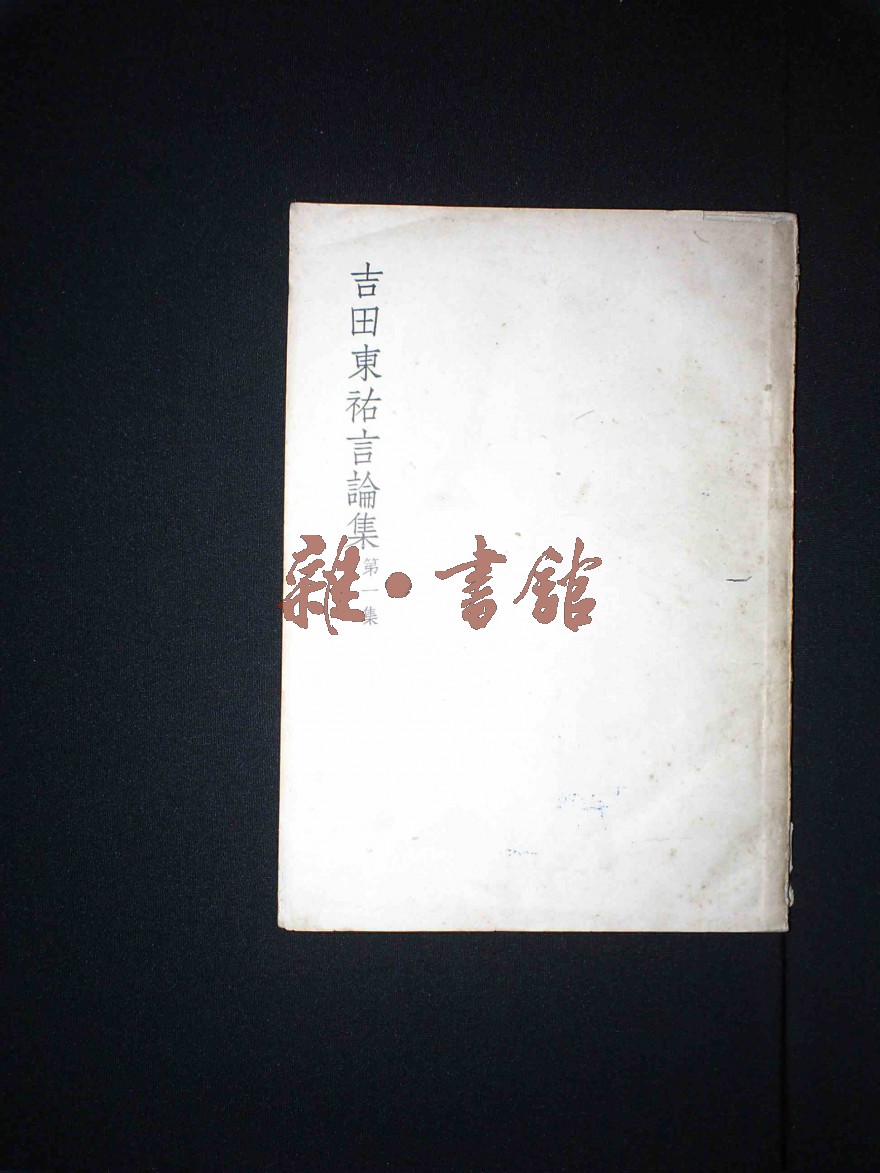 吉田東祐言論集
第一集
雜·書館